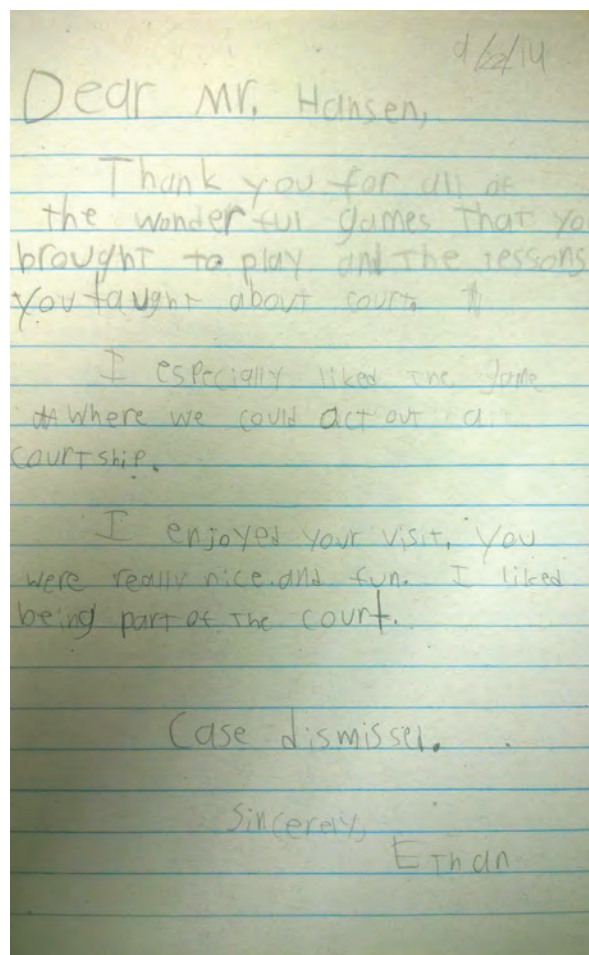 9/22/14
Dear Mr. Hansen,
Thank you for all of
the wonderful games that yo
brought to play and the lessons
you taught about court.
I especially liked the game
where we could act out a
courtship.
I enjoyed your visit. You
were really nice and fun. I liked
being part of the court.
Case dismissed.
Sincerely,
Ethan